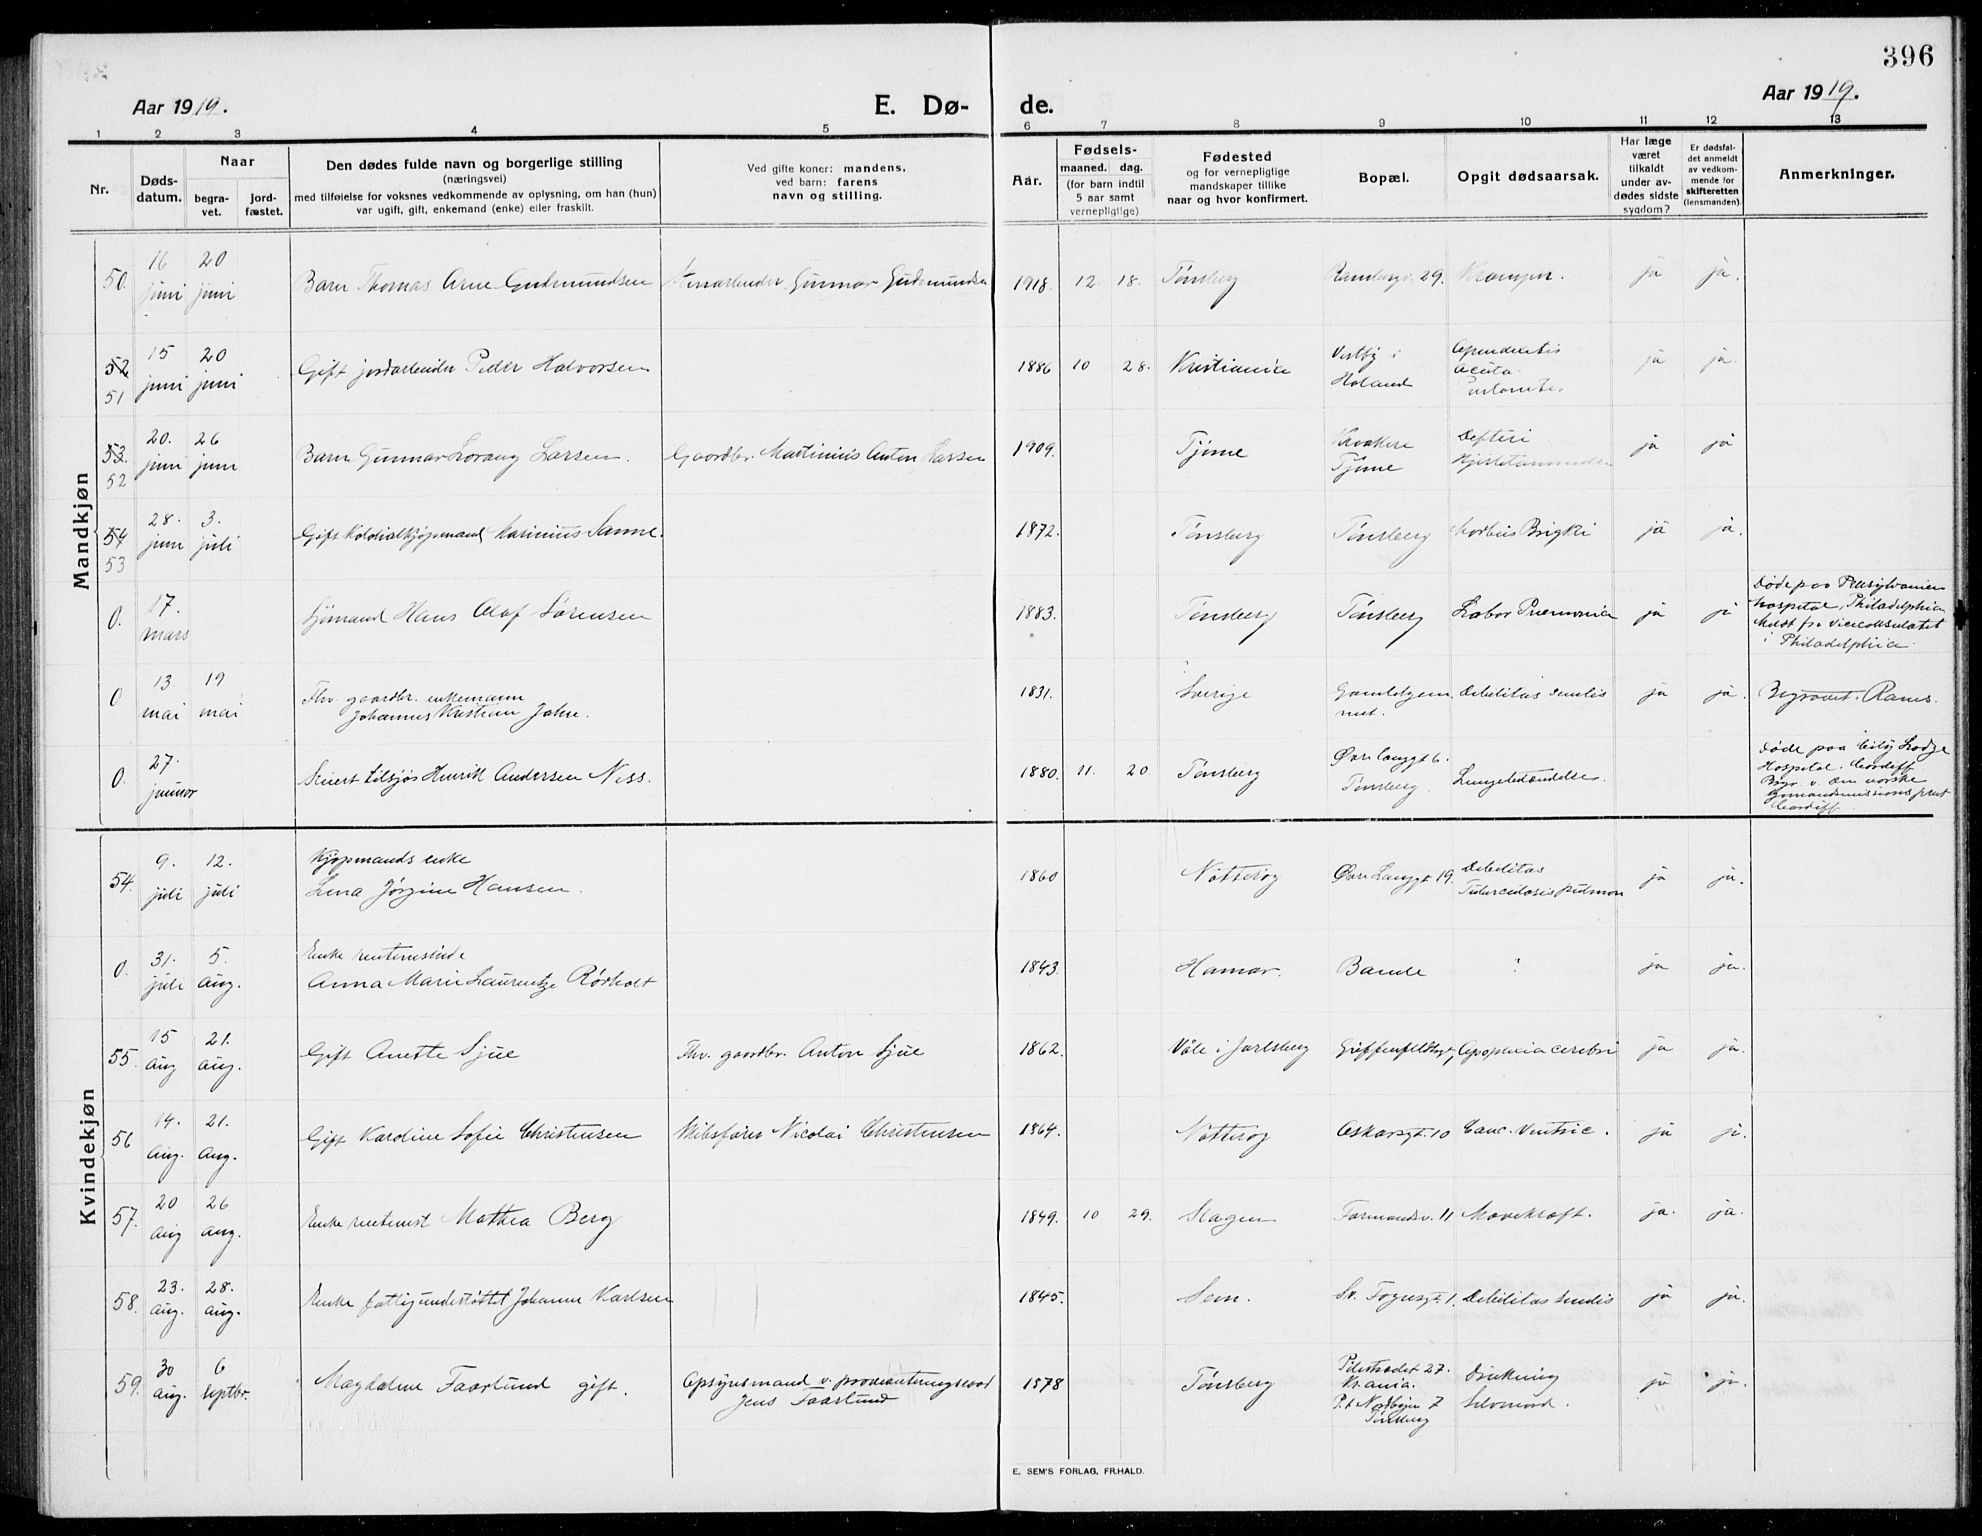 396
Aar 1919.
E. Dø-
de.
Aar 1919.
1 2 3 4 5 6 7 8 9 10 11 12 13
Nr.
Døds-
datum.
Naar
begra-
vet.
jord-
fæstet.
Den dødes fulde navn og borgerlige stilling
(næringsvei)
med tilføielse for voksnes vedkommende av oplysning, om han (hun)
var ugift, gift, enkemand (enke) eller fraskilt.
Ved gifte koner: mandens,
ved barn: farens
navn og stilling.
Aar.
Fødsels-
maaned. dag.
(for barn indtil
5 aar samt
vernepligtige)
Fødested
og for vernepligtige
mandskaper tillike
naar og hvor konfirmert.
Bopæl.
Opgit dødsaarsak.
Har læge
været
tilkaldt
under av-
dødes sidste
sygdom?
Er dødsfal-
det anmeldt
av vedkom-
mende for
skifteretten
(lensmanden).
Anmerkninger.
Mandkjøn
50. 16 juni 20 juni Barn Thomas Arne Gudmundsen Gunnar Gudmundsen 1918. 12. 18. Tønsberg 29. Kramper. ja ja.
52 51 15 juni 20 juni Gift jordarbeider Peder Halvorsen 1886 10 28. Kristiania Vestby i Holand Apendicitis acuta ja ja.
53. 52 20. juni 26 juni Barn Gunnar Lorang Larsen. Gaardbr. Martinius Anton Larsen 1909. Tjøme Tjøme Defteri ja ja
54 53 28. juni 3. juli Gift Kolonialkjøpmand Marinius Sanne. 1872. Tønsberg Tønsberg Morbus Brighti ja ja.
0. 17. mars Sjømand Hans Olaf Sørensen 1883. Tønsberg Tønsberg Lobar Pnemonia ja ja Døde paa Pensylvanien Hospital, Philadelphia Meldt fra Viceconsulatet i Philadelphia.
0 13 mai 19 mai Fhv. gaardbr. enkemann Johannes Kristian Jahre. 1831. Sverige Gamlehjemmet. Debilitas senilis ja ja. Begravet. Ramn.
0. 27. januar Stuert tilsjøs Henrik Andersen Ness. 1880. 11. 20. Tønsberg Øvre Langgt 6. Tønsberg. Lungebetændelse. Døde paa City Lodge Hospital. Cardiff Begr. v. den norske sjømandsmissions prest Cardiff.
Kvindekjøn
54. 9. juli 12. juli Kjøpmands enke Lena Jørgine Hansen. 1860 Nøtterøy Øvre Langgt 19. Debilitas Tuberculosis pulmon ja ja.
0. 31. juli 5. aug. Enke Anna Marie Laurentze Rørholt 1843. Hamar. Bande ? ja ja.
55. 15 aug 21. aug. Gift Anette Sjue Fhv. gaardbr. Anton Sjue 1862. Våle i Jarlsberg Griffenfeldtsgt, Apoplexia cerebri ja ja.
56 14. aug. 21. aug. Gift Karoline Sofie Christensen Skibsfører Nicolai Christensen 1864. Nøtterøy Oskarsgt. 10 Canc. Ventric. ja ja.
57. 20 aug 26 aug. Enke Mathea Berg 1849. 10 29. Slagen Farmandsv. 11 Mavekræft. ja. ja.
58. 23. aug. 28. aug. Enke fattigunderstøttet Johanne Karlsen 1845. Sem. Sv. Foynsgt. 1. Debilitas senilis ja ja.
59. 30 aug. 6 septbr. Magdalene Faarlund gift. Opsynsmand v. provianteringsraad Jens Faarlund 1878 Tønsberg Pilestrædet 27. Kr.ania. P.t. Nordbyen 7 Tønsberg Drukning Selvmord. ja ja.
E. SEM'S FORLAG, FR.HALD.